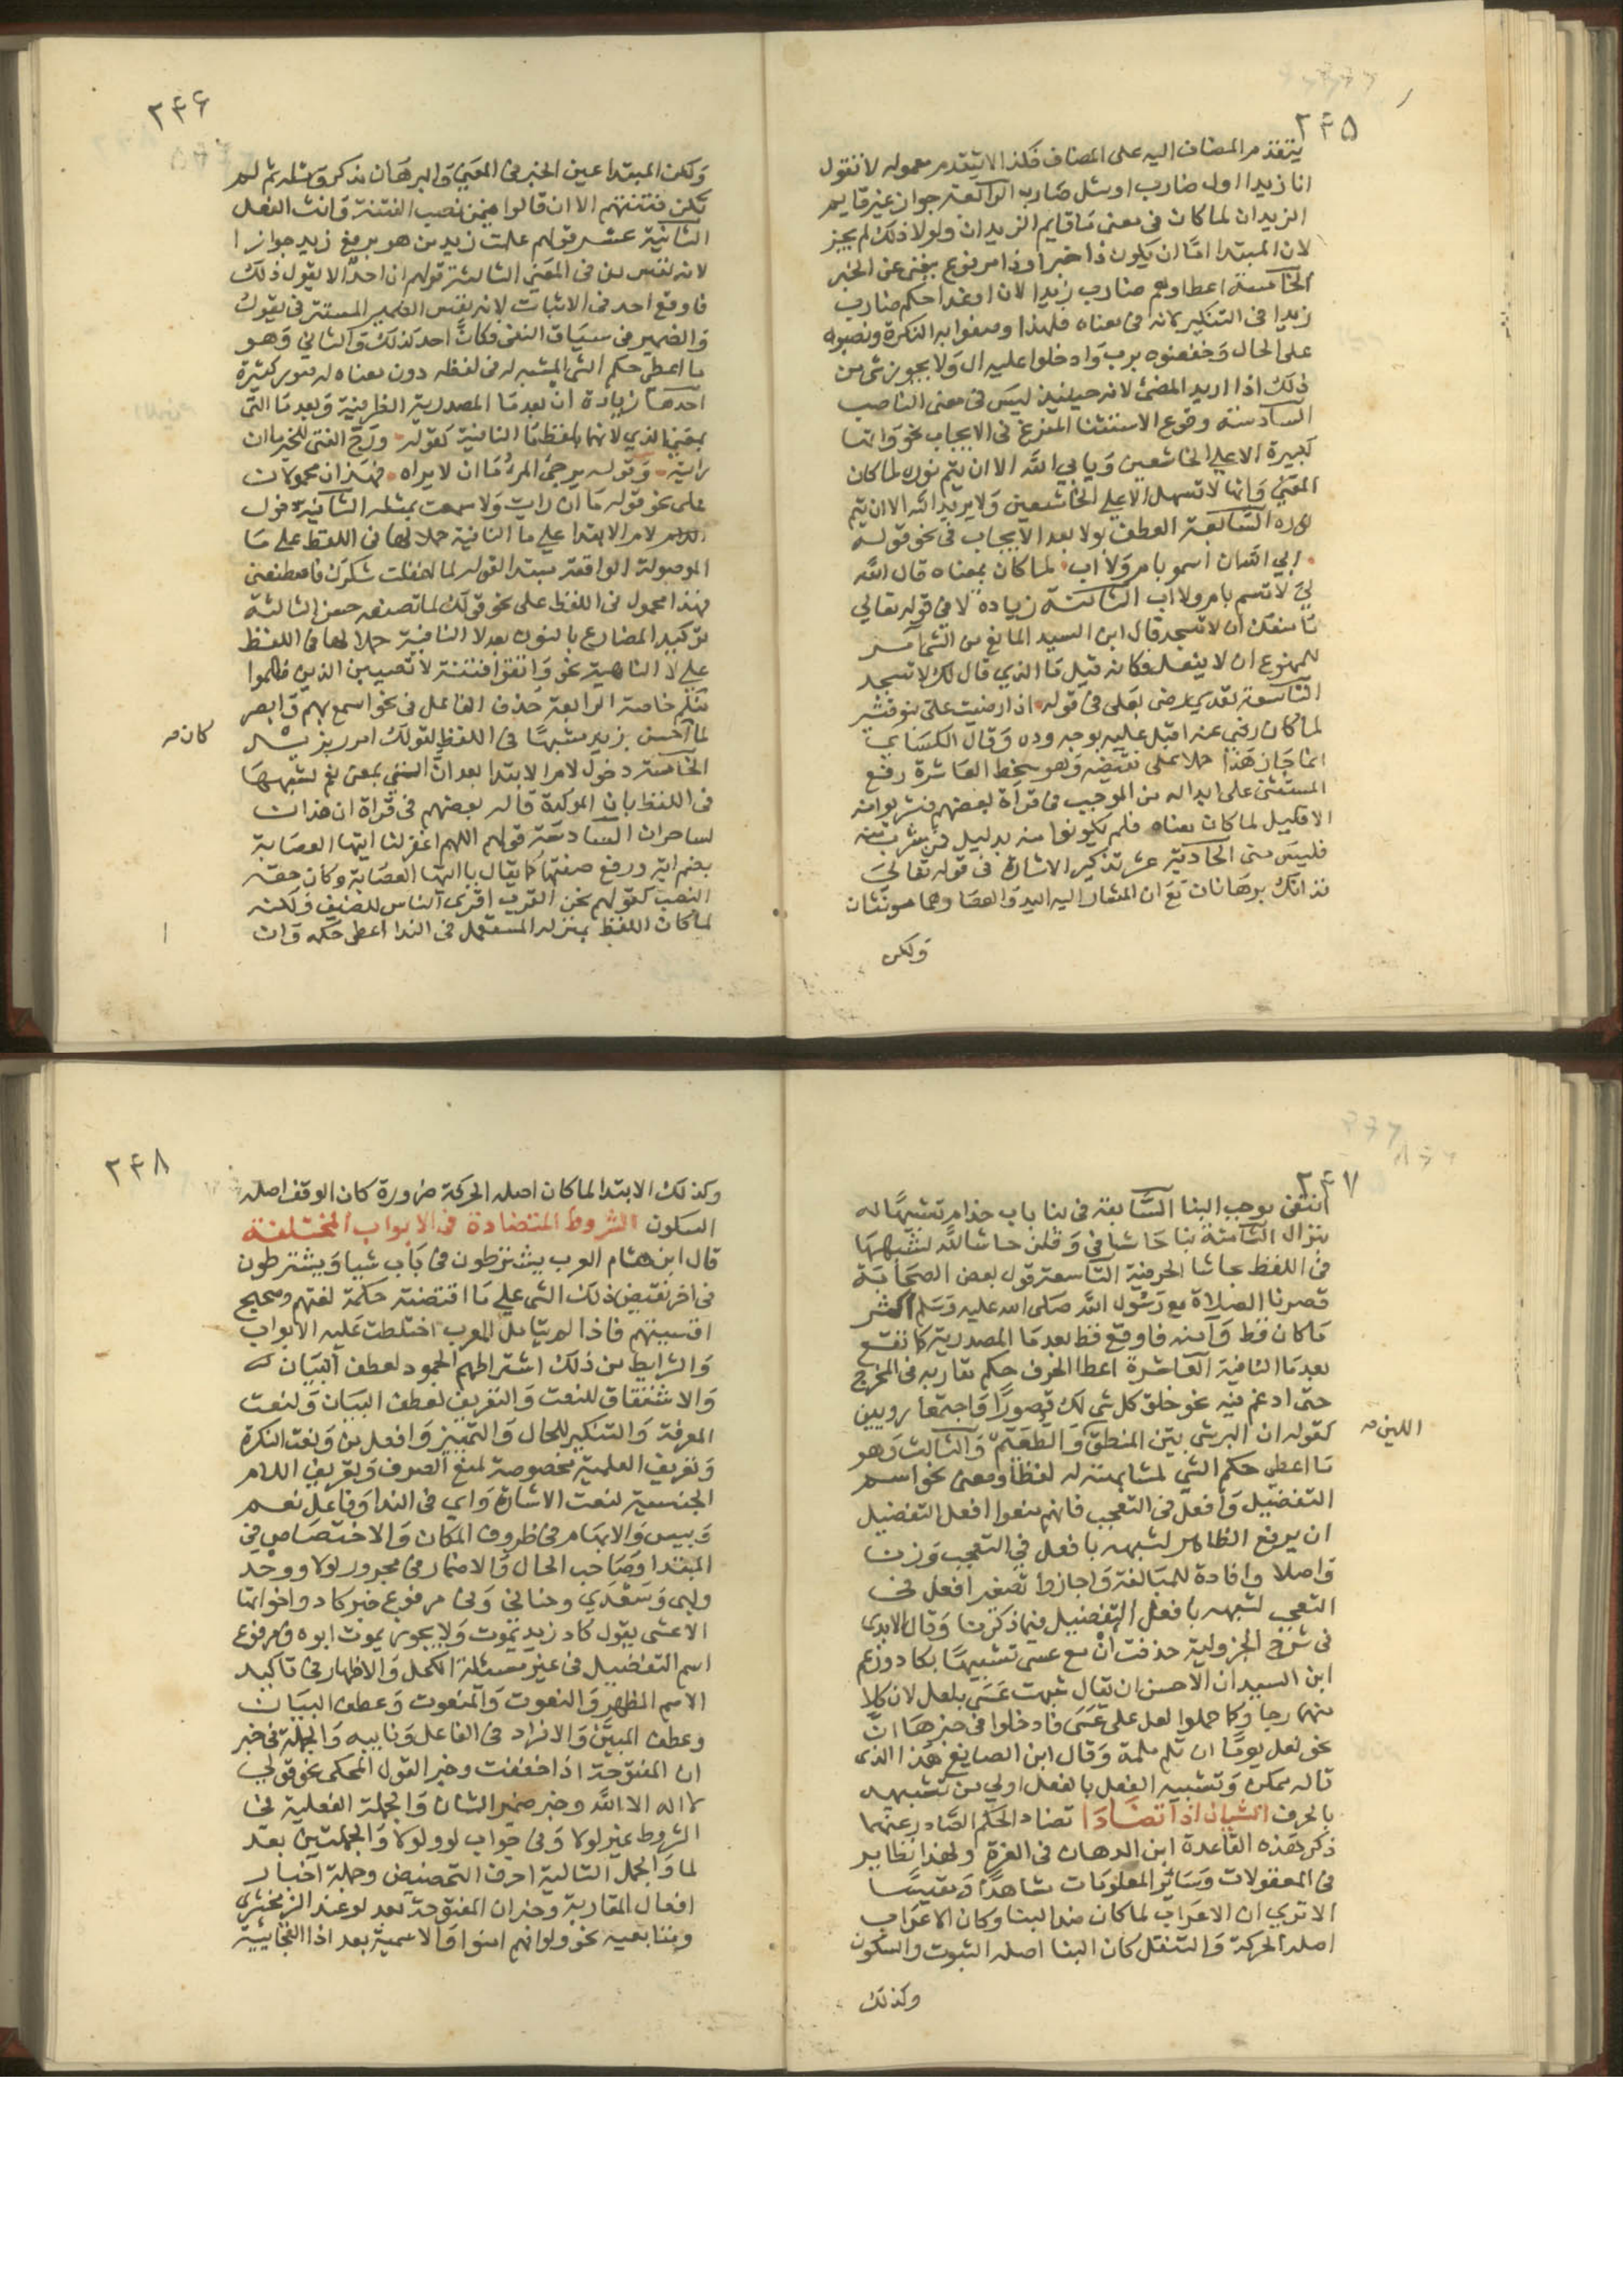 ٢٤٥
يتقدم المضاف اليه على المضاف فكذا لا يتقدم معموله لا تقول
انا زيدا اول ضارب او مثل ضارب الرابعة جواز غير قايم
الزيدان لما كان في معنى ما قايم الزيدان ولولا ذلك لم يجز
لان المبتدا اما ان يكون ذا خبر او ذا مرفوع يغني عن الخبر
الخامسة اعطاوهم ضارب زيد الان او غدا حكم ضارب
زيدا في التنكير لانه في معناه فلهذا وصفوا به النكرة ونصبوه
على الحال وخفضوه برب وادخلوا عليه ال ولا يجوز شي من
ذلك اذا اريد المضي لانه حينيذ ليس في معنى الناصب
السادسة وقوع الاستثنا المفرغ في الايجاب نحو وانها
لكبيرة الا على الخاشعين ويابي الله الا ان يتم نوره لما كان
المعنى وانها لا تسهل الا على الخاشعين ولا يريد الله الا ان يتم
نوره السابعة العطف بولا بعد الايجاب في نحو قوله
ابي الله ان اسمو بام ولا اب لما كان بمعناه قال الله
لي لا تسم بام ولا اب الثامنة زيادة لا في قوله تعالى
ما منعك ان لا تسجد قال ابن السيد المانع من الشي آمر
للممنوع ان لا يفعل فكانه قيل ما الذي قال لك لا تسجد
التاسعة تعدي رضي بعلى في قوله اذا رضيت على بنو قشير
لما كان رضي عنه اقبل عليه بوجه وده وقال الكسائي
انما جاز هذا حملا على نقيضه وهو سخط العاشرة رفع
المستثنى على ابداله من الموجب في قراة بعضهم فشربوا منه
الا قليل لما كان معناه فلم يكونوا منه بدليل فمن شرب منه
فليس مني الحادية عشر تذكير الاشارة في قوله تعالى
فذانك برهانان مع ان المشار اليه اليد والعصا وهما مونثان
ولكن
٢٤٦
ولكن المبتدا عين الخبر في المعنى والبرهان مذكر ومثله ثم لم
تكن فتنتهم الا ان قالوا فيمن نصب الفتنة وانث الفعل
الثانية عشر قولهم علمت زيد من هو برفع زيد جوازا
لانه نفس من في المعنى الثالثة قولهم ان احدا لا يقول ذلك
فاوقع احد في الاثبات لانه نفس الضمير المستتر في يقول
والضمير في سياق النفي فكان احد كذلك والثاني وهو
ما اعطي حكم الشي المشبه له في لفظه دون معناه له صور كثيرة
احدها زيادة ان بعد ما المصدرية الظرفية وبعد ما التي
بمعنى الذي لانها بلفظ ما النافية كقوله ورج الفتى للخير ما ان
رايته وقوله يرجي المرء ما ان لا يراه فهذان محمولان
على نحو قوله ما ان رايت ولا سمعت بمثله الثانية دخول
لام الابتدا على ما النافية حملا لها في اللفظ على ما
الموصولة الواقعة مبتدا كقوله لما اغفلت شكرك فاصطنعني
فهذا محمول في اللفظ على نحو قولك لما تصنعه حسن الثالثة
توكيد المضارع بالنون بعد لا النافية حملا لها في اللفظ
على لا الناهية نحو واتقوا فتنة لا تصيبن الذين ظلموا
منكم خاصة الرابعة حذف الفاعل في نحو اسمع بهم وابصر
لما احسن بزيد مشبها في اللفظ لقولك امرر بزيد
كان صـ
الخامسة دخول لام الابتدا بعد ان التي بمعنى نعم لشبهها
في اللفظ بان الموكدة قاله بعضهم في قراة ان هذان
لساحران السادسة قولهم اللهم اغفر لنا ايتها العصابة
بضم اية ورفع صفتها كما يقال يا ايتها العصابة وكان حقه
النصب كقولهم نحن العرب اقرى الناس للضيف ولكنه
لما كان اللفظ بمنزله المستعمل في الندا اعطي حكمه وان
٢٤٧
انتفى موجب البنا السابعة في بنا باب حذام تشبيها له
بنزال الثامنة بنا حاشا في وقلن حاشا لله لشبهها
في اللفظ بحاشا الحرفية التاسعة قول بعض الصحابة
قصرنا الصلاة مع رسول الله صلى الله عليه وسلم اكثر
ما كان قط وآمنه فاوقع قط بعد ما المصدرية كما تقع
بعد ما النافية العاشرة اعطا الحرف حكم مقاربه في المخرج
حتى ادغم فيه نحو خلق كل شي لك قصورا واجتمعا رويين
كقوله ان البر شي بين المنطق والطعيم والثالث وهو
اللين صـ
ما اعطي حكم الشي لمشابهته له لفظا ومعنى نحو اسم
التفضيل وافعل في التعجب فانهم منعوا افعل التفضيل
ان يرفع الظاهر لشبهه بافعل في التعجب وزنا
واصلا وافادة للمبالغة واجازوا تصغير افعل في
التعجب لشبهه بافعل التفضيل فيما ذكرنا وقال الابدي
في شرح الجزولية حذفت ان مع عسى تشبيها بكاد وزعم
ابن السيد ان الاحسن ان يقال شبهت عسى بلعل لان كلا
منهما رجا وكما حملوا لعل على عسى فادخلوا في خبرها ان
نحو لعلك يوما ان تلم ملمة وقال ابن الصايغ هذا الذي
قاله ممكن وتشبيه الفعل بالفعل اولى من تشبيهه
بالحرف الشيان اذا تضادا تضاد الحكم الصادر عنهما
ذكر هذه القاعدة ابن الدهان في الغرة ولهذا نظاير
في المعقولات وسائر المعلومات شاهدا ومقيسا
الا ترى ان الاعراب لما كان ضد البنا وكان الاعراب
اصله الحركة والتنقل كان البنا اصله الثبوت والسكون
وكذلك
٢٤٨
وكذلك الابتدا لما كان اصله الحركة ضرورة كان الوقف اصله
السكون الشروط المتضادة في الابواب المختلفة
قال ابن هشام العرب يشترطون في باب شيا ويشترطون
في اخر نقيض ذلك الشي على ما اقتضته حكمة لغتهم وصحيح
اقيستهم فاذا لم يتامل المعرب اختلطت عليه الابواب
والشرايط من ذلك اشتراطهم الجمود لعطف البيان
والاشتقاق للنعت والتعريف لعطف البيان ولنعت
المعرفة والتنكير للحال والتمييز وافعل من ونعت النكرة
وتعريف العلمية بخصوصة لمنع الصرف وتعريف اللام
الجنسية لنعت الاشارة واي في الندا وفاعل نعم
وبيس والابهام في ظروف المكان والاختصاص في
المبتدا وصاحب الحال والاضمار في مجرور لولا ووحد
ولبى وسعدي وحناني وفي مرفوع خبر كاد واخواتها
الا عسى يقول كاد زيد يموت ولا يجوز يموت ابوه ومرفوع
اسم التفضيل في غير مسئلة الكحل والاظهار في تاكيد
الاسم المظهر والنعوت والمنعوت وعطف البيان
وعطف المبين والافراد في الفاعل ونايبه والجملة في خبر
ان المفتوحة اذا خففت وخبر القول المحكي نحو قولي
لا اله الا الله وخبر ضمير الشان والجملة الفعلية في
الشروط غير لولا وفي جواب لو ولولا والجملتين بعد
لما والجمل التالية احرف التحضيض وجملة اخبار
افعال المقاربة وخبر ان المفتوحة بعد لو عند الزمخشري
ومتابعيه نحو ولو انهم امنوا والاسمية بعد اذا الفجائية